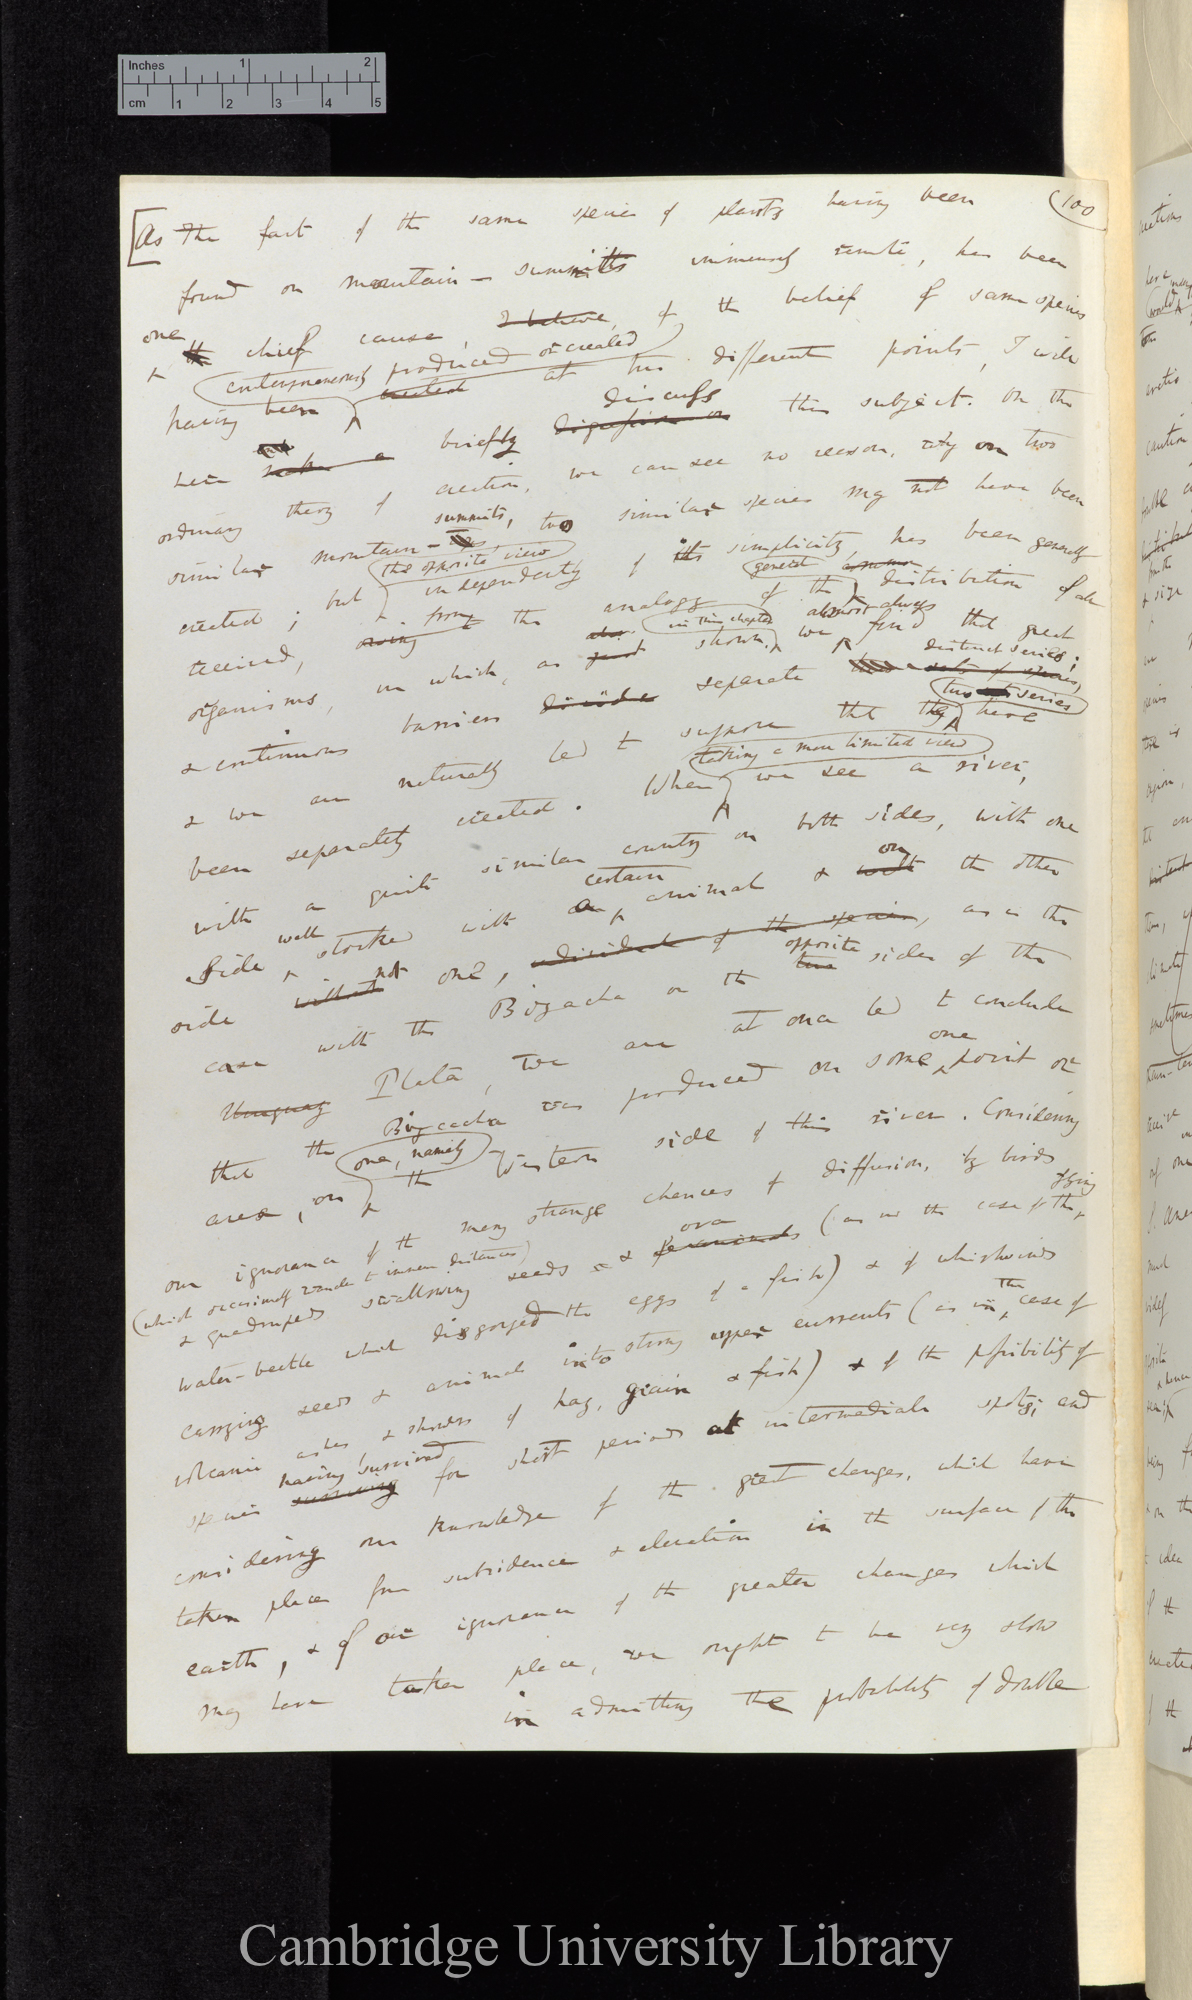 Inches 1 2
cm 1 2 3 4 5
(100
[As The fact of the same species of plants having been
found on mountain-summits immensely remote, has been
one
& the chief cause, I believe, of the belief of same species
contemporaneously produced or created
having been created at two different points, I will
discuss
here make a briefly digression on this subject. On the
ordinary theory of creation, we can see no reason, why on two
summits,
similar mountain- two similar species may not have been
the opposite view
created; but independently of its simplicity, has been generally
general common
received, owing & from to the analogy of the distribution of all
in this chapter almost always
organisms, in which, as just shown, we find that great
distinct series;
& continuous barriers divide separate sets of species,
two series
& we are naturally led to suppose that they have
taking a more limited view
been separately created. When we see a river,
with a quite similar country on both sides, with one
well certain on
side stocked with an animal & with the other
not
side without one, individual of the species, as in the
opposite
case with the Bizcacha on the two sides of the
Uruguay Plata, we are at once led to conclude
one
that the Bizcacha was produced on some point or
one, namely
area, on the Western side of this river. Considering
our ignorance of the many strange chances of diffusion, by birds
(which occasionally wander to immense distances)
flying
& quadrupeds swallowing seeds & ova (as in the case of the
water-beetle which disgorged the eggs of a fish) & of whirlwinds
the
carrying seeds & animal into strong upper currents (as in case of
volcanic ashes & showers of hay, grain & fish) & of the possibility of
having survived
species surviving for short periods at intermediate spots; and
considering our knowledge of the great changes, which have
taken place from subsidence & elevation in the surface of the
earth, & of our ignorance of the greater changes which
may have taken place, we ought to be very slow
in admitting the probability of double
Cambridge University Library